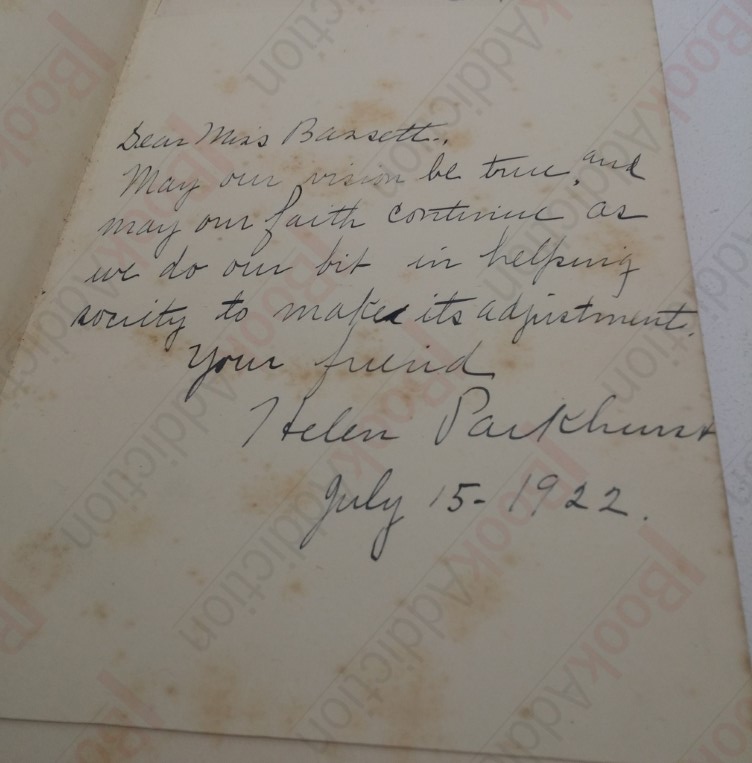 Dear Miss Bassett.,
May our vision be true, and
may our faith continue as
we do our bit in helping
society to make its adjustment.
Your friend
Helen Parkhurst
July 15-1922.
BookAddiction